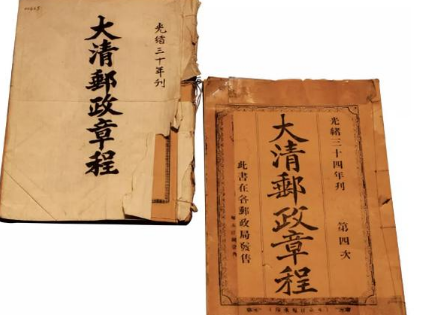 光緒三十年刊
大清郵政章程
光緒三十四年刊
第四次
大清郵政章程
此書在各郵政局發售